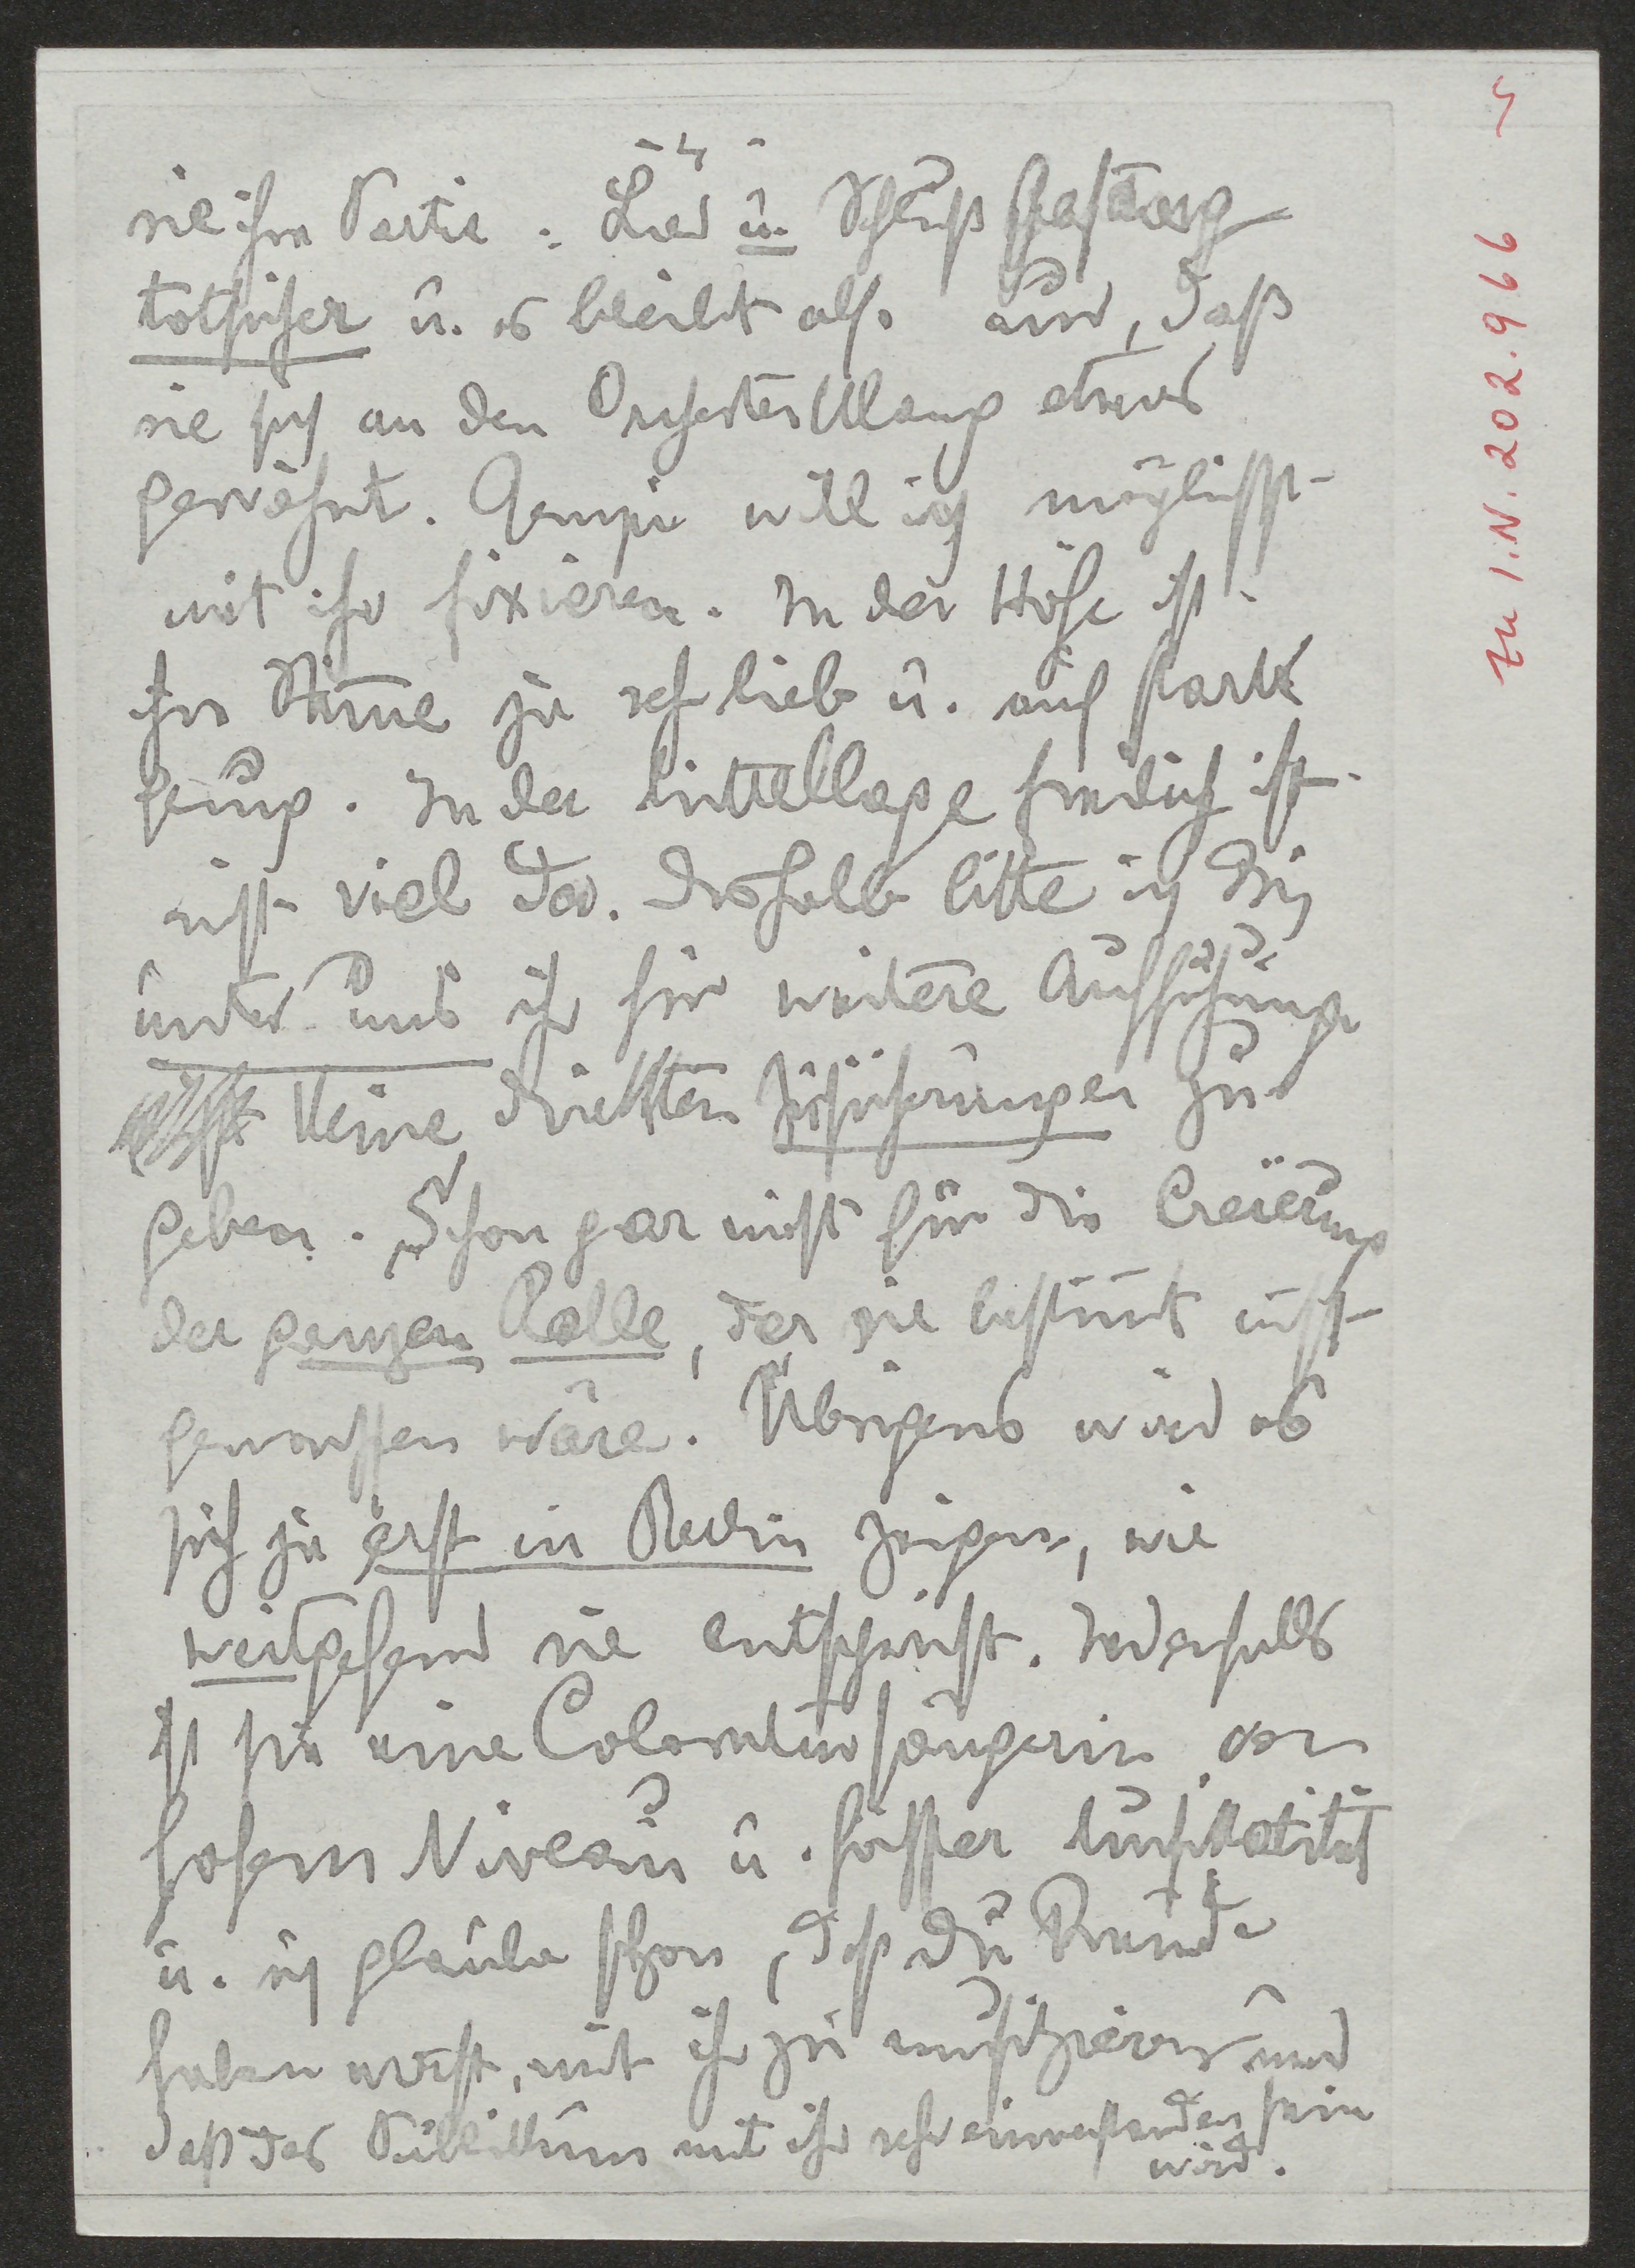 - 4 -
sie ihre Partie : Lied u. Schluß Gesang
totsicher u. es bleibt also nur, daß
sie sich an den Orchesterklang etwas
gewöhnt. Tempi will ich möglichst
mit ihr fixieren. In der Höhe ist
ihre Stimme ja sehr lieb u. auch stark
genug. In der Mittellage freilich ist
nicht viel da. Deshalb bitte ich Dich
unter uns ihr für weitere Aufführungen
keine direkten Zusicherungen zu
geben. Schon gar nicht für die Creierung
der ganzen Rolle, der sie bestimmt nicht
gewachsen wäre. Übrigens wird es
sich ja erst in Berlin zeigen, wie
weitgehend sie entspricht. Jedenfalls
ist sie eine Coloratursängerin von
hohem Niveau u. höchster Musikalität
u. ich glaube schon, daß Du Freude
haben wirst, mit ihr zu musizieren und
daß das Publikum mit ihr sehr einverstanden sein
wird.
zu I.N. 202.966
5